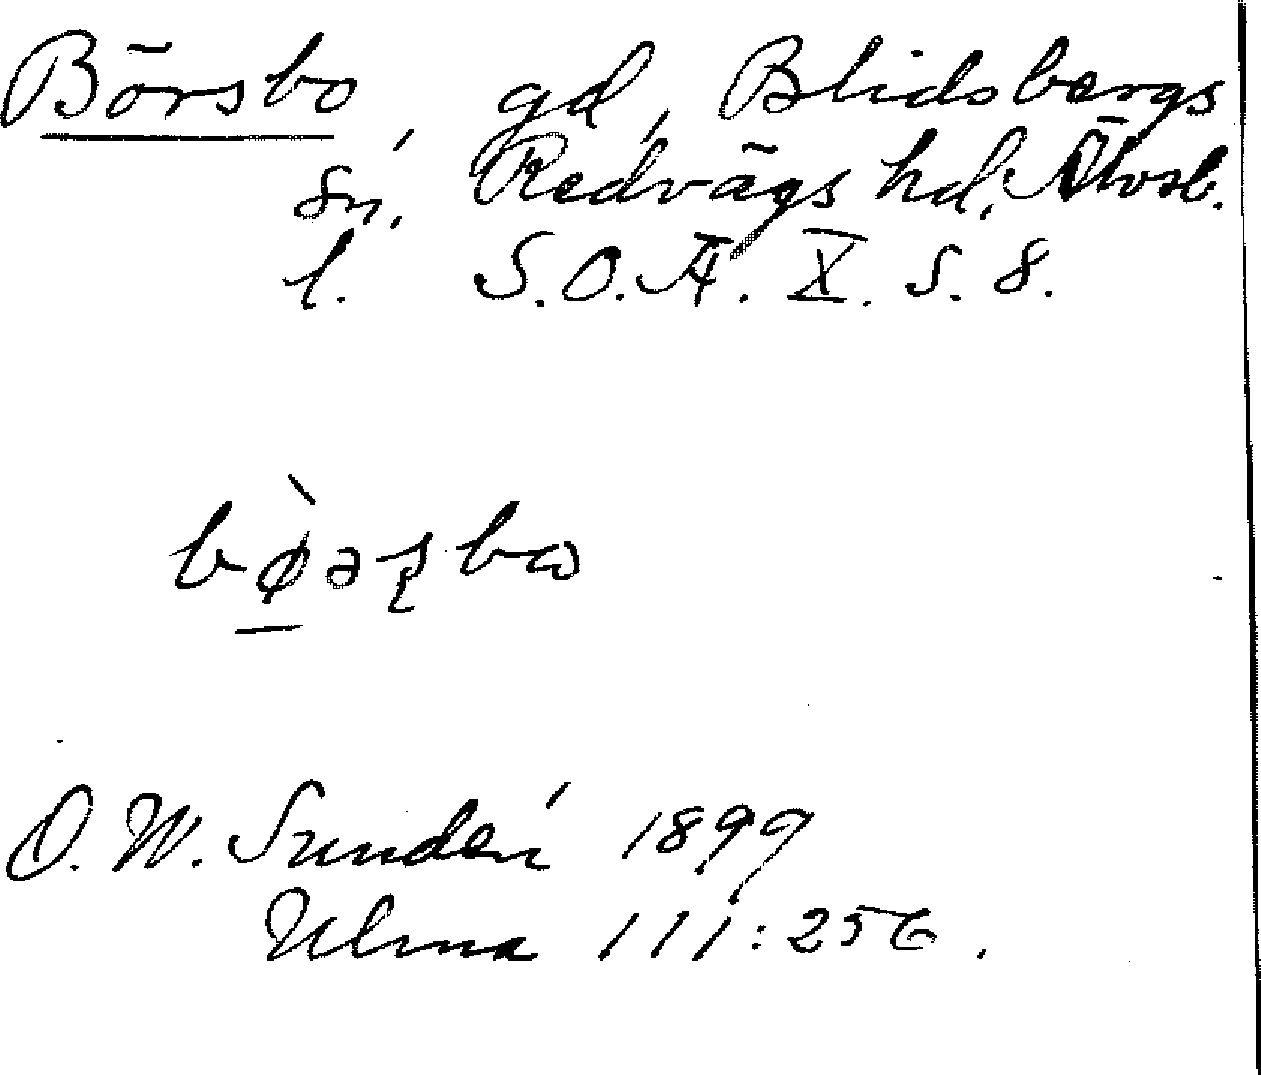 Börsbo, gd, Blidsbergs
sn, Redvägs hd, Älvsb.
l. S.O.Ä. X. S. 8.
O. W. Sundén 1899
Ulma 111:256.